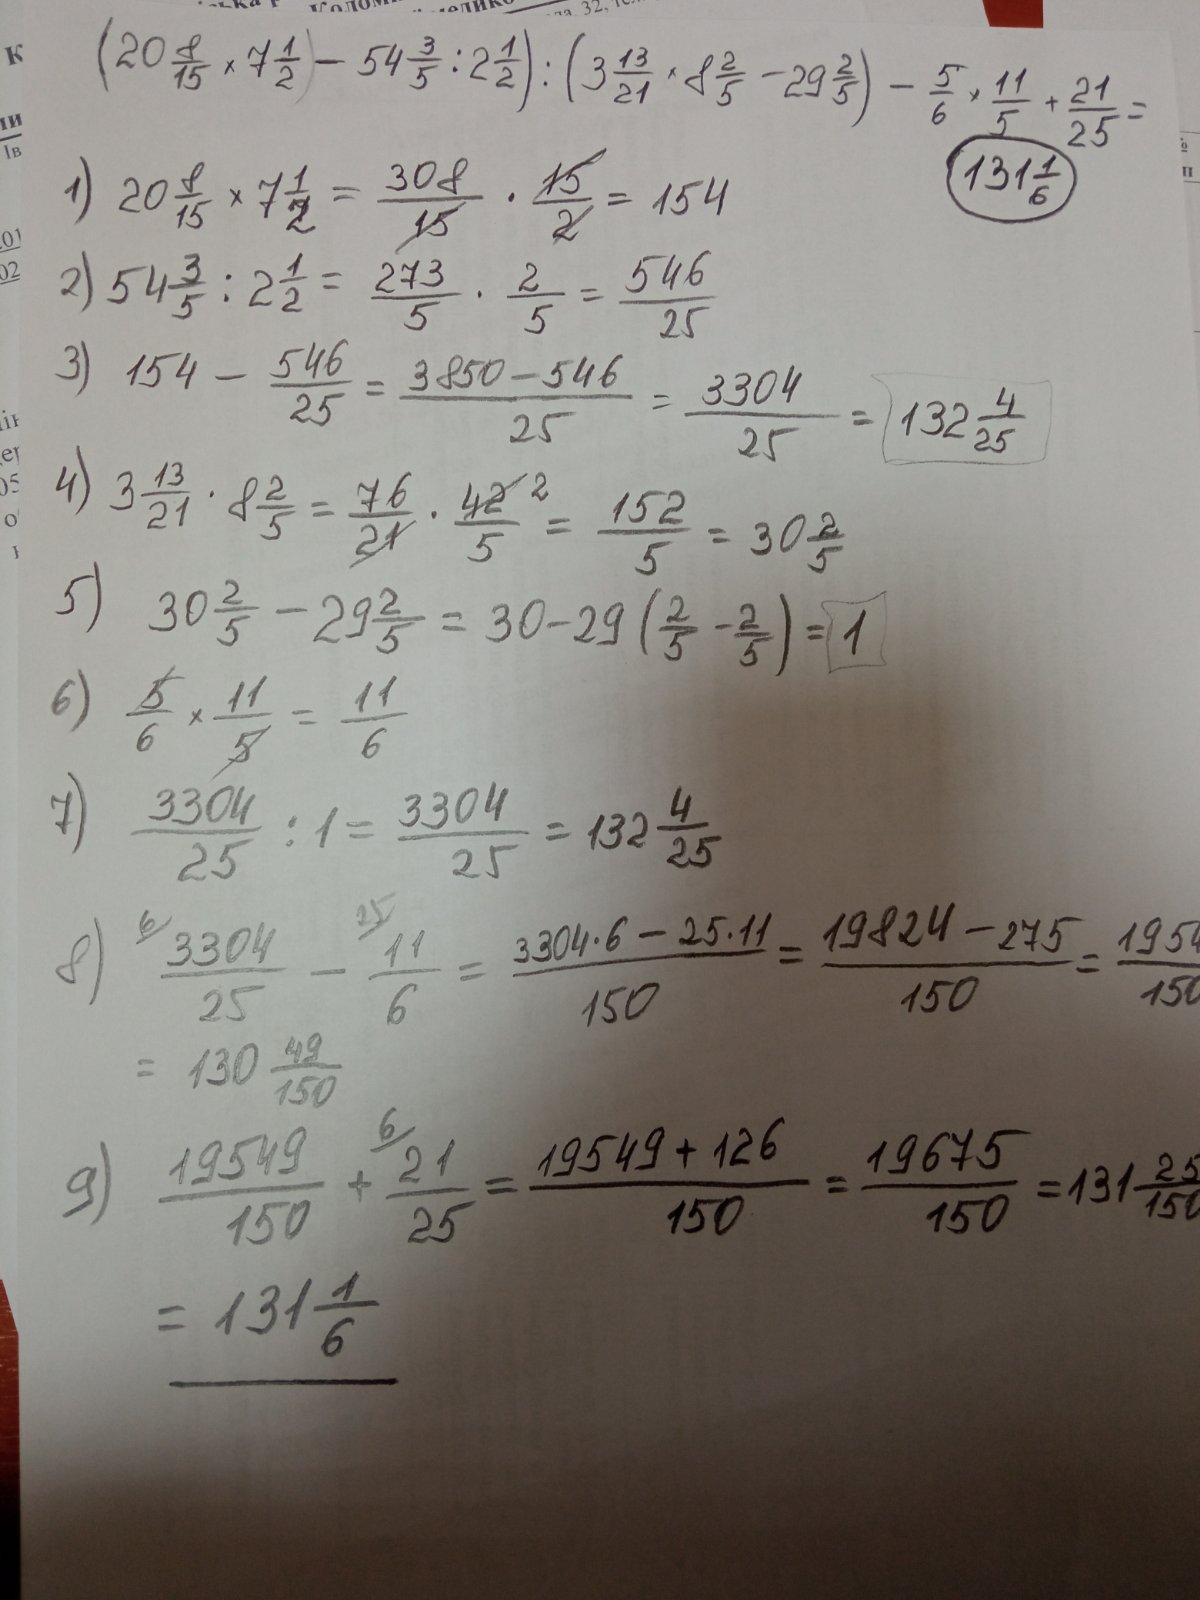 (20 8/15 × 7 1/2) − 54 3/5 : 2 1/2) : (3 13/21 × 8 2/5 − 29 2/5) − 5/6 × 11/5 + 21/25 =
131 1/6
1) 20 8/15 × 7 1/2 = 308/15 · 15/2 = 154
2) 54 3/5 : 2 1/2 = 273/5 · 2/5 = 546/25
3) 154 − 546/25 = 3850−546/25 = 3304/25 = 132 4/25
4) 3 13/21 · 8 2/5 = 76/21 · 42/5 2 = 152/5 = 30 2/5
5) 30 2/5 − 29 2/5 = 30−29 (2/5 − 2/5) = 1
6) 5/6 × 11/5 = 11/6
7) 3304/25 : 1 = 3304/25 = 132 4/25
8) 6/ 3304/25 − 25/ 11/6 = 3304·6 − 25·11/150 = 19824 − 275/150 = 1954/150
= 130 49/150
9) 19549/150 + 6/ 21/25 = 19549 + 126/150 = 19675/150 = 131 25/150
= 131 1/6